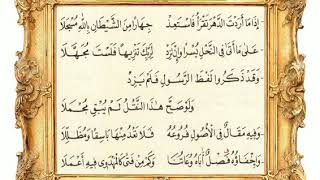 - إِذَا مَا أَرَدْتَ الدَّهْرَ تَقْرَأُ فَاسْتَعِذْ جِهَارًا مِنَ الشَّيْطَانِ بِاللهِ مُسْجَلَا
- عَلَى مَا أَتَى فِي النَّحْلِ يُسْرًا وَإِنْ تَزِدْ لِرَبِّكَ تَنْزِيهًا فَلَسْتَ مُجَهَّلَا
- وَقَدْ ذَكَرُوا لَفْظَ الرَّسُولِ فَلَمْ يَزِدْ
وَلَوْ صَحَّ هَذَا النَّقْلُ لَمْ يُبْقِ مُجْمَلَا
- وَفِيهِ مَقَالٌ فِي الْأُصُولِ فُرُوعُهُ فَلَا تَعْدُ مِنْهَا بَاسِقًا وَمُظَلِّلَا
- وَإِخْفَاؤُهُ فَصْلٌ أَبَاهُ وُعَاتُنَا وَكَمْ مِنْ فَتًى كَالْمَهْدَوِي فِيهِ أَعْمَلَا